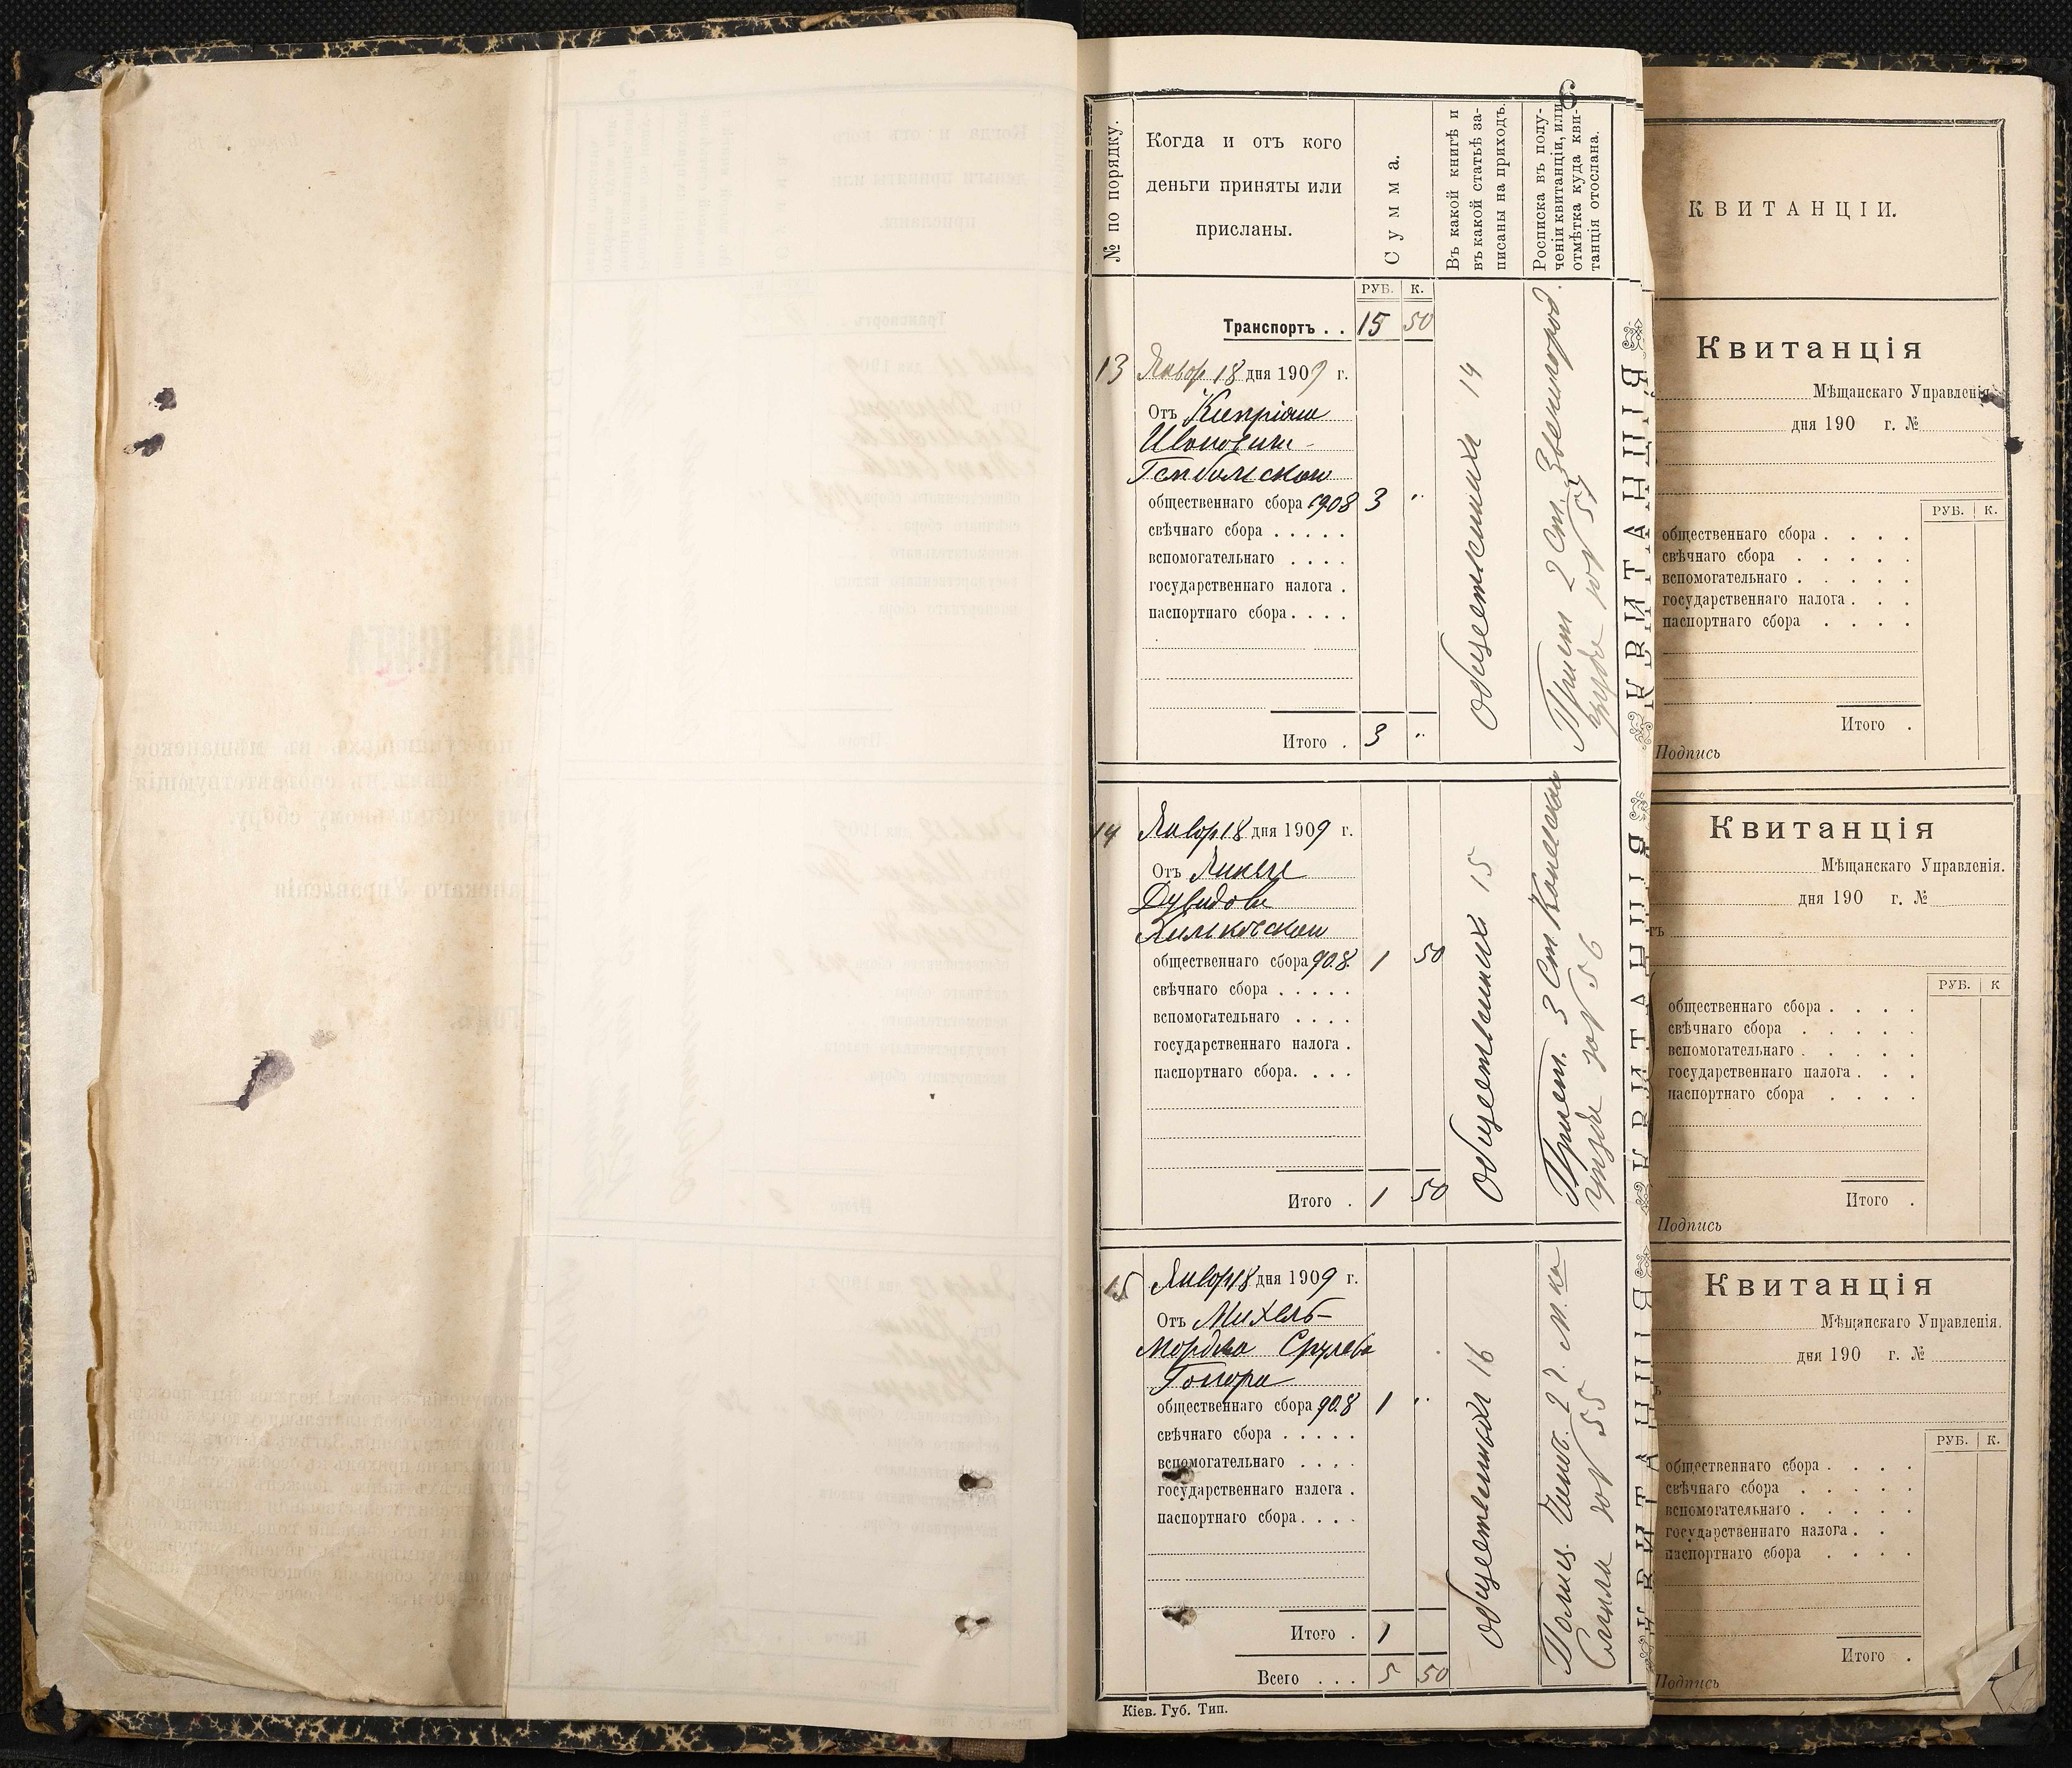 6
№ по порядку.
Когда и отъ кого
деньги приняты или
присланы.
Сумма.
Въ какой книгѣ и
въ какой статьѣ за-
писаны на приходъ.
Росписка въ полу-
ченіи квитанціи, или
отмѣтка куда кви-
танція отослана.
РУБ. К.
Транспортъ . . 15 50
13 Январ 18 дня 1909 г.
Отъ Кипріана
Ивановича
общественнаго сбора 1908 3 "
свѣчнаго сбора . . . . .
вспомогательнаго . . . .
государственнаго налога .
паспортнаго сбора . . . .
Итого . 3 "
общественных 14
Прист. 2 ст. Звенигород.
уезда за № 57
14 Январ 18 дня 1909 г.
Отъ
Дувидова
общественнаго сбора 908 1 50
свѣчнаго сбора . . . . .
вспомогательнаго . . . .
государственнаго налога .
паспортнаго сбора. . . .
Итого . 1 50
общественных 15
Прист. 3 ст Каневскаго
уезда за № 56
15 Январ 18 дня 1909 г.
Отъ Михель-
Мордка Срулева
общественнаго сбора 908 1 "
свѣчнаго сбора . . . . .
вспомогательнаго . . . .
государственнаго налога .
паспортнаго сбора . . . .
Итого . 1
Всего . . . 5 50
общественных 16
Полиц.
Смела за № 55
Кіев. Губ. Тип.
КВИТАНЦІЯ
КВИТАНЦІЯ
КВИТАНЦІЯ
КВИТАНЦІИ.
Квитанція
Мѣщанскаго Управленія.
дня 190 г. №
РУБ. К.
общественнаго сбора . . . .
свѣчнаго сбора . . . . .
вспомогательнаго . . . . .
государственнаго налога . . .
паспортнаго сбора . . . .
Итого .
Подпись
Квитанція
Мѣщанскаго Управленія.
дня 190 г. №
РУБ. К
общественнаго сбора . . . .
свѣчнаго сбора . . . . .
вспомогательнаго . . . . .
государственнаго налога . . .
паспортнаго сбора . . . .
Итого .
Подпись
Квитанція
Мѣщанскаго Управленія.
дня 190 г. №
РУБ. К.
общественнаго сбора . . . .
свѣчнаго сбора . . . . .
вспомогательнаго . . . . .
государственнаго налога . .
паспортнаго сбора . . . .
Итого .
Подпись